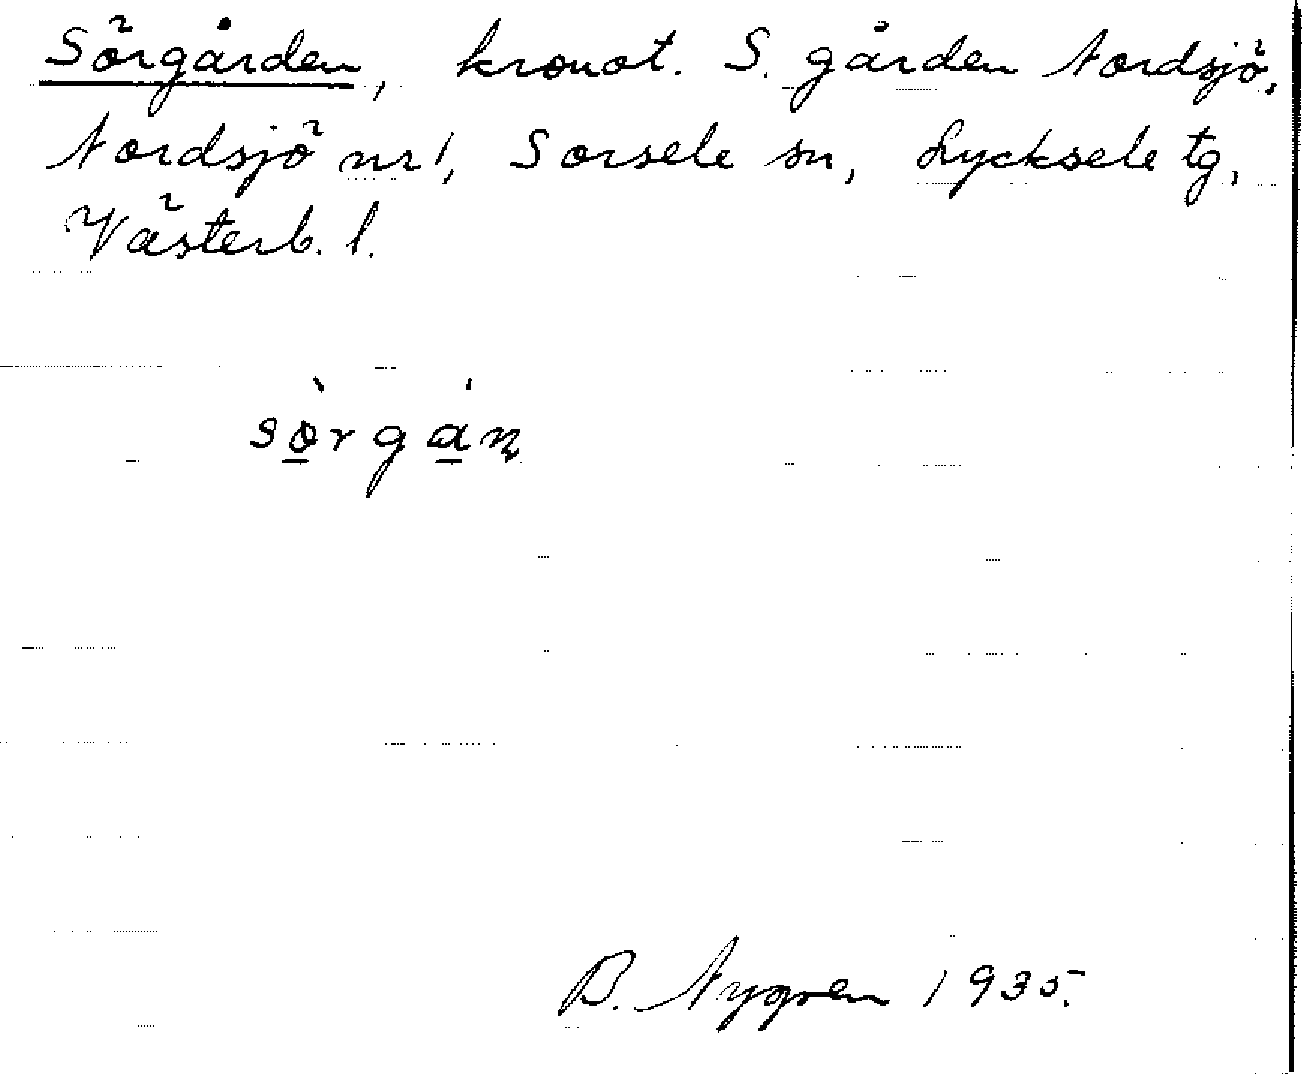 Sörgården, kronot. S. gården Nordsjö,
Nordsjö nr 1, Sorsele sn, Lycksele tg,
Västerb. l.
sö̲̀rgá̲ɳ
B. Nygren 1935.